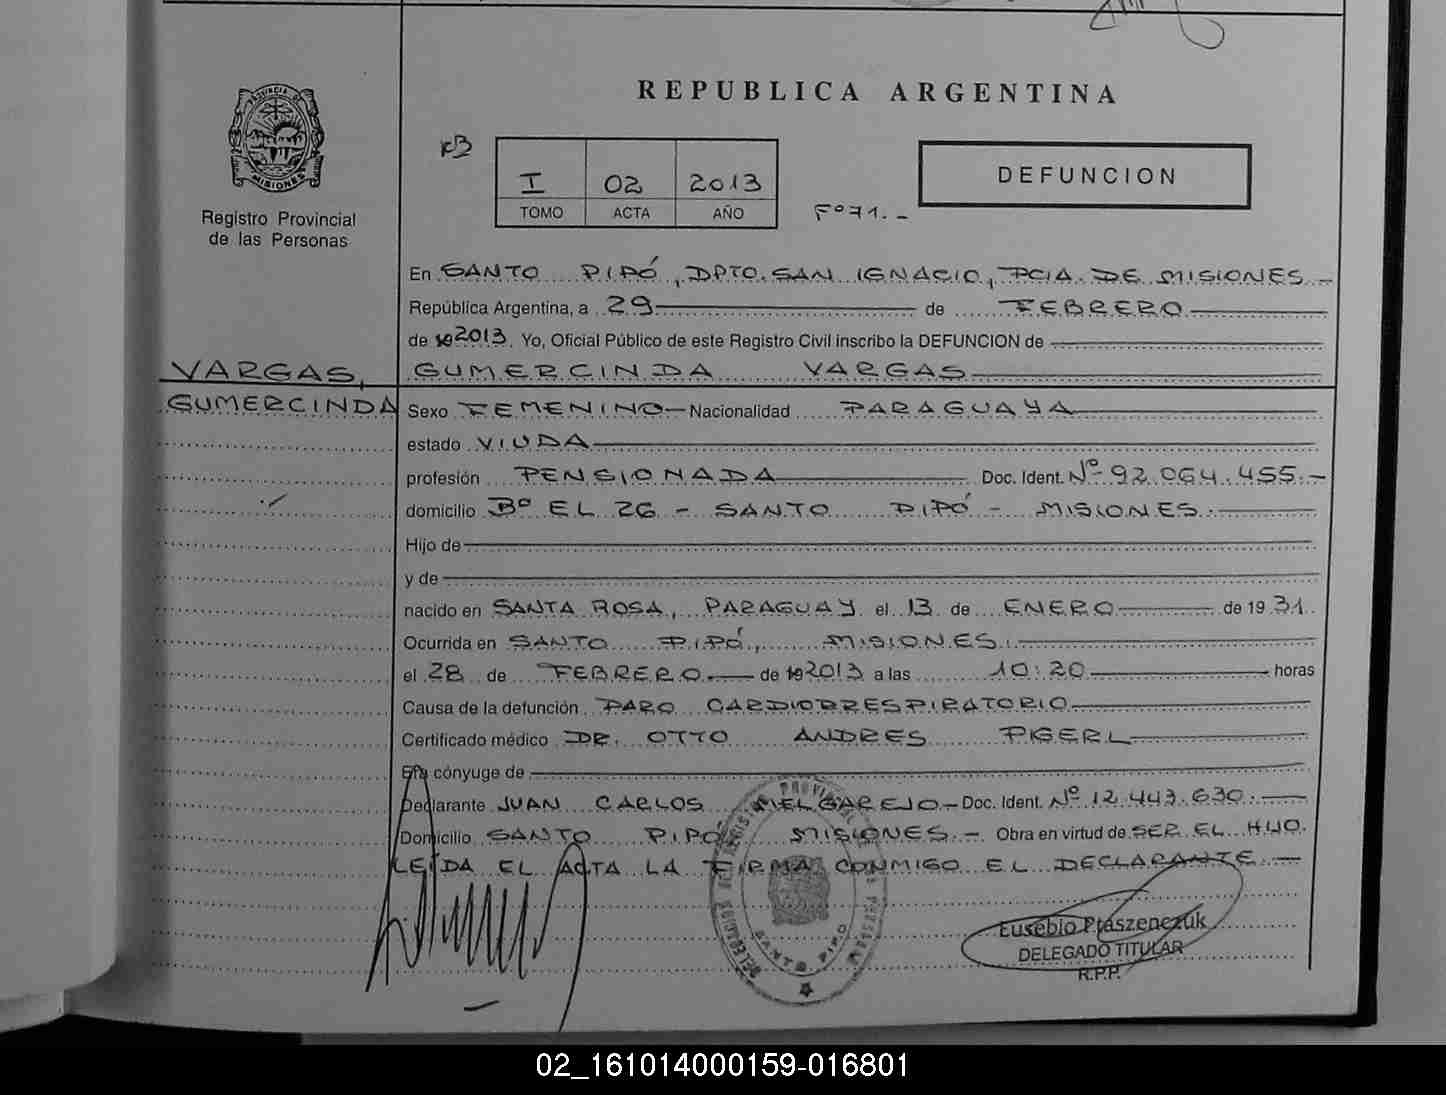 PROVINCIA DE
MISIONES
Registro Provincial
de las Personas
REPUBLICA ARGENTINA
I 02 2013
TOMO ACTA AÑO
Fº 71.-
DEFUNCION
En SANTO PIPÓ, DPTO. SAN IGNACIO, PCIA. DE MISIONES.-
República Argentina, a 29 de FEBRERO
de 19 2013. Yo, Oficial Público de este Registro Civil inscribo la DEFUNCION de
VARGAS, GUMERCINDA VARGAS
GUMERCINDA Sexo FEMENINO- Nacionalidad PARAGUAYA
estado VIUDA
profesión PENSIONADA Doc. Ident. Nº 92.064.455.-
domicilio Bº EL 26 - SANTO PIPÓ - MISIONES.
Hijo de
y de
nacido en SANTA ROSA, PARAGUAY el 13 de ENERO de 19 31.
Ocurrida en SANTO PIPÓ, MISIONES.
el 28 de FEBRERO.- de 19 2013 a las 10:20 horas
Causa de la defunción PARO CARDIORRESPIRATORIO
Certificado médico DR. OTTO ANDRES PIGERL
Era cónyuge de
Declarante JUAN CARLOS MELGAREJO- Doc. Ident. Nº 12.443.630.
Domicilio SANTO PIPÓ MISIONES.- Obra en virtud de SER EL HIJO.
LEÍDA EL ACTA LA FIRMA CONMIGO EL DECLARANTE.-
SANTO PIPO
Eusebio Ptaszenczuk
DELEGADO TITULAR
R.P.P.
02_161014000159-016801